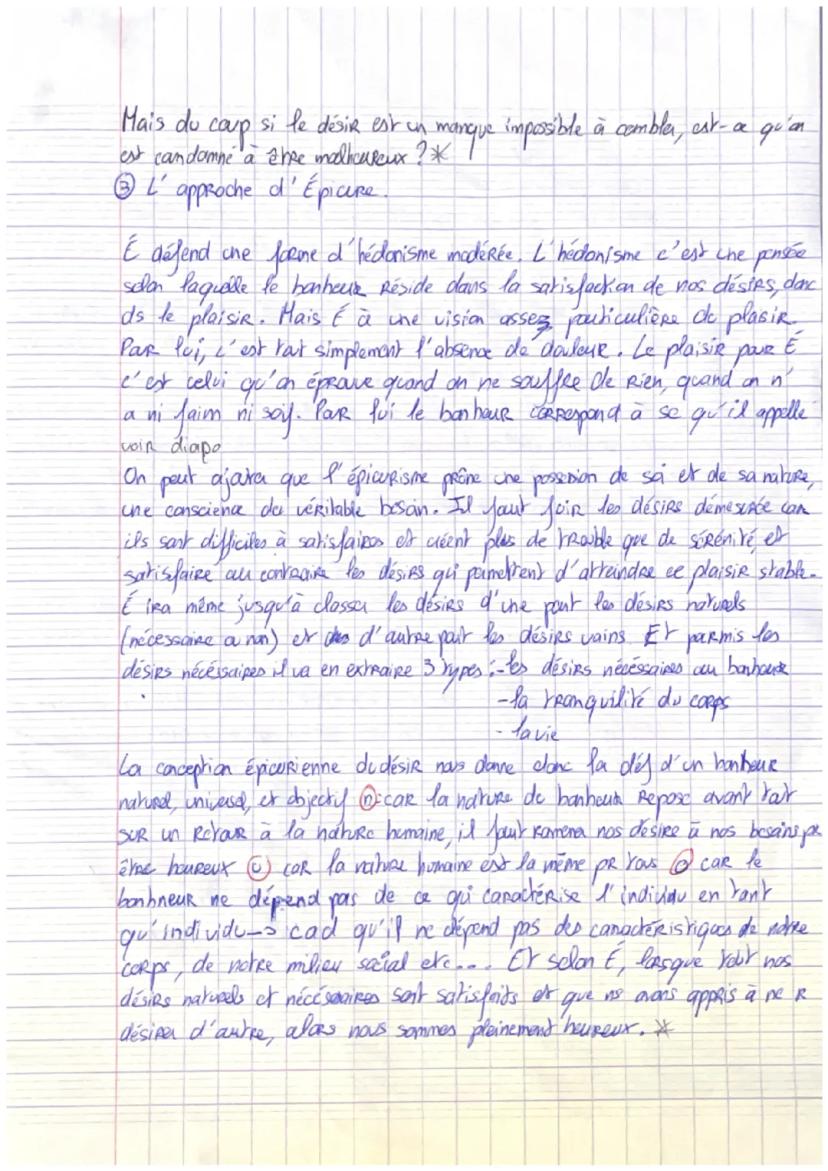 Mais du coup si le désir est un manque impossible à combler, est-ce qu'on
est condamné à être malheureux ? *
③ L'approche d'Épicure.
É défend une forme d'hédonisme modérée. L'hédonisme c'est une pensée
selon laquelle le bonheur réside dans la satisfaction de nos désirs, donc
ds le plaisir. Mais É à une vision assez particulière de plasir.
Par lui, c'est tout simplement l'absence de douleur. Le plaisir pour É
c'est celui qu'on éprouve quand on ne souffre de rien, quand on n'
a ni faim ni soif. Par lui le bonheur correspond à se qu'il appelle
voir diapo
On peut ajouter que l'épicurisme prône une possession de soi et de sa nature,
une conscience du véritable besoin. Il faut fuir les désirs démesurée car
ils sont difficiles à satisfaires et créent plus de trouble que de sérénité, et
satisfaire au contraire les désirs qui permettent d'atteindre ce plaisir stable.
É ira même jusqu'à classer les désirs d'une part les désirs naturels
(nécessaire ou non) et d'autre part les désirs vains. Et parmis les
désirs nécéssaires il va en extraire 3 types : - les désirs nécéssaires au bonheur
- la tranquilité du corps
- la vie
La conception épicurienne du désir nous donne donc la cléf d'un bonheur
naturel, universel, et objectif ⓝ: car la nature de bonheur repose avant tout
sur un retour à la nature humaine, il faut ramener nos désire à nos besoins pr
être heureux ⓤ car la nature humaine est la même pr tous ⓞ car le
bonhneur ne dépend pas de ce qui caractérise l'individu en tant
qu'individu -> cad qu'il ne dépend pas des caractéristiques de notre
corps, de notre milieu social etc.... Et selon É, lorsque tout nos
désirs naturels et nécéssaires sont satisfaits et que ns avons appris à ne r
désirer d'autre, alors nous sommes pleinement heureux. *